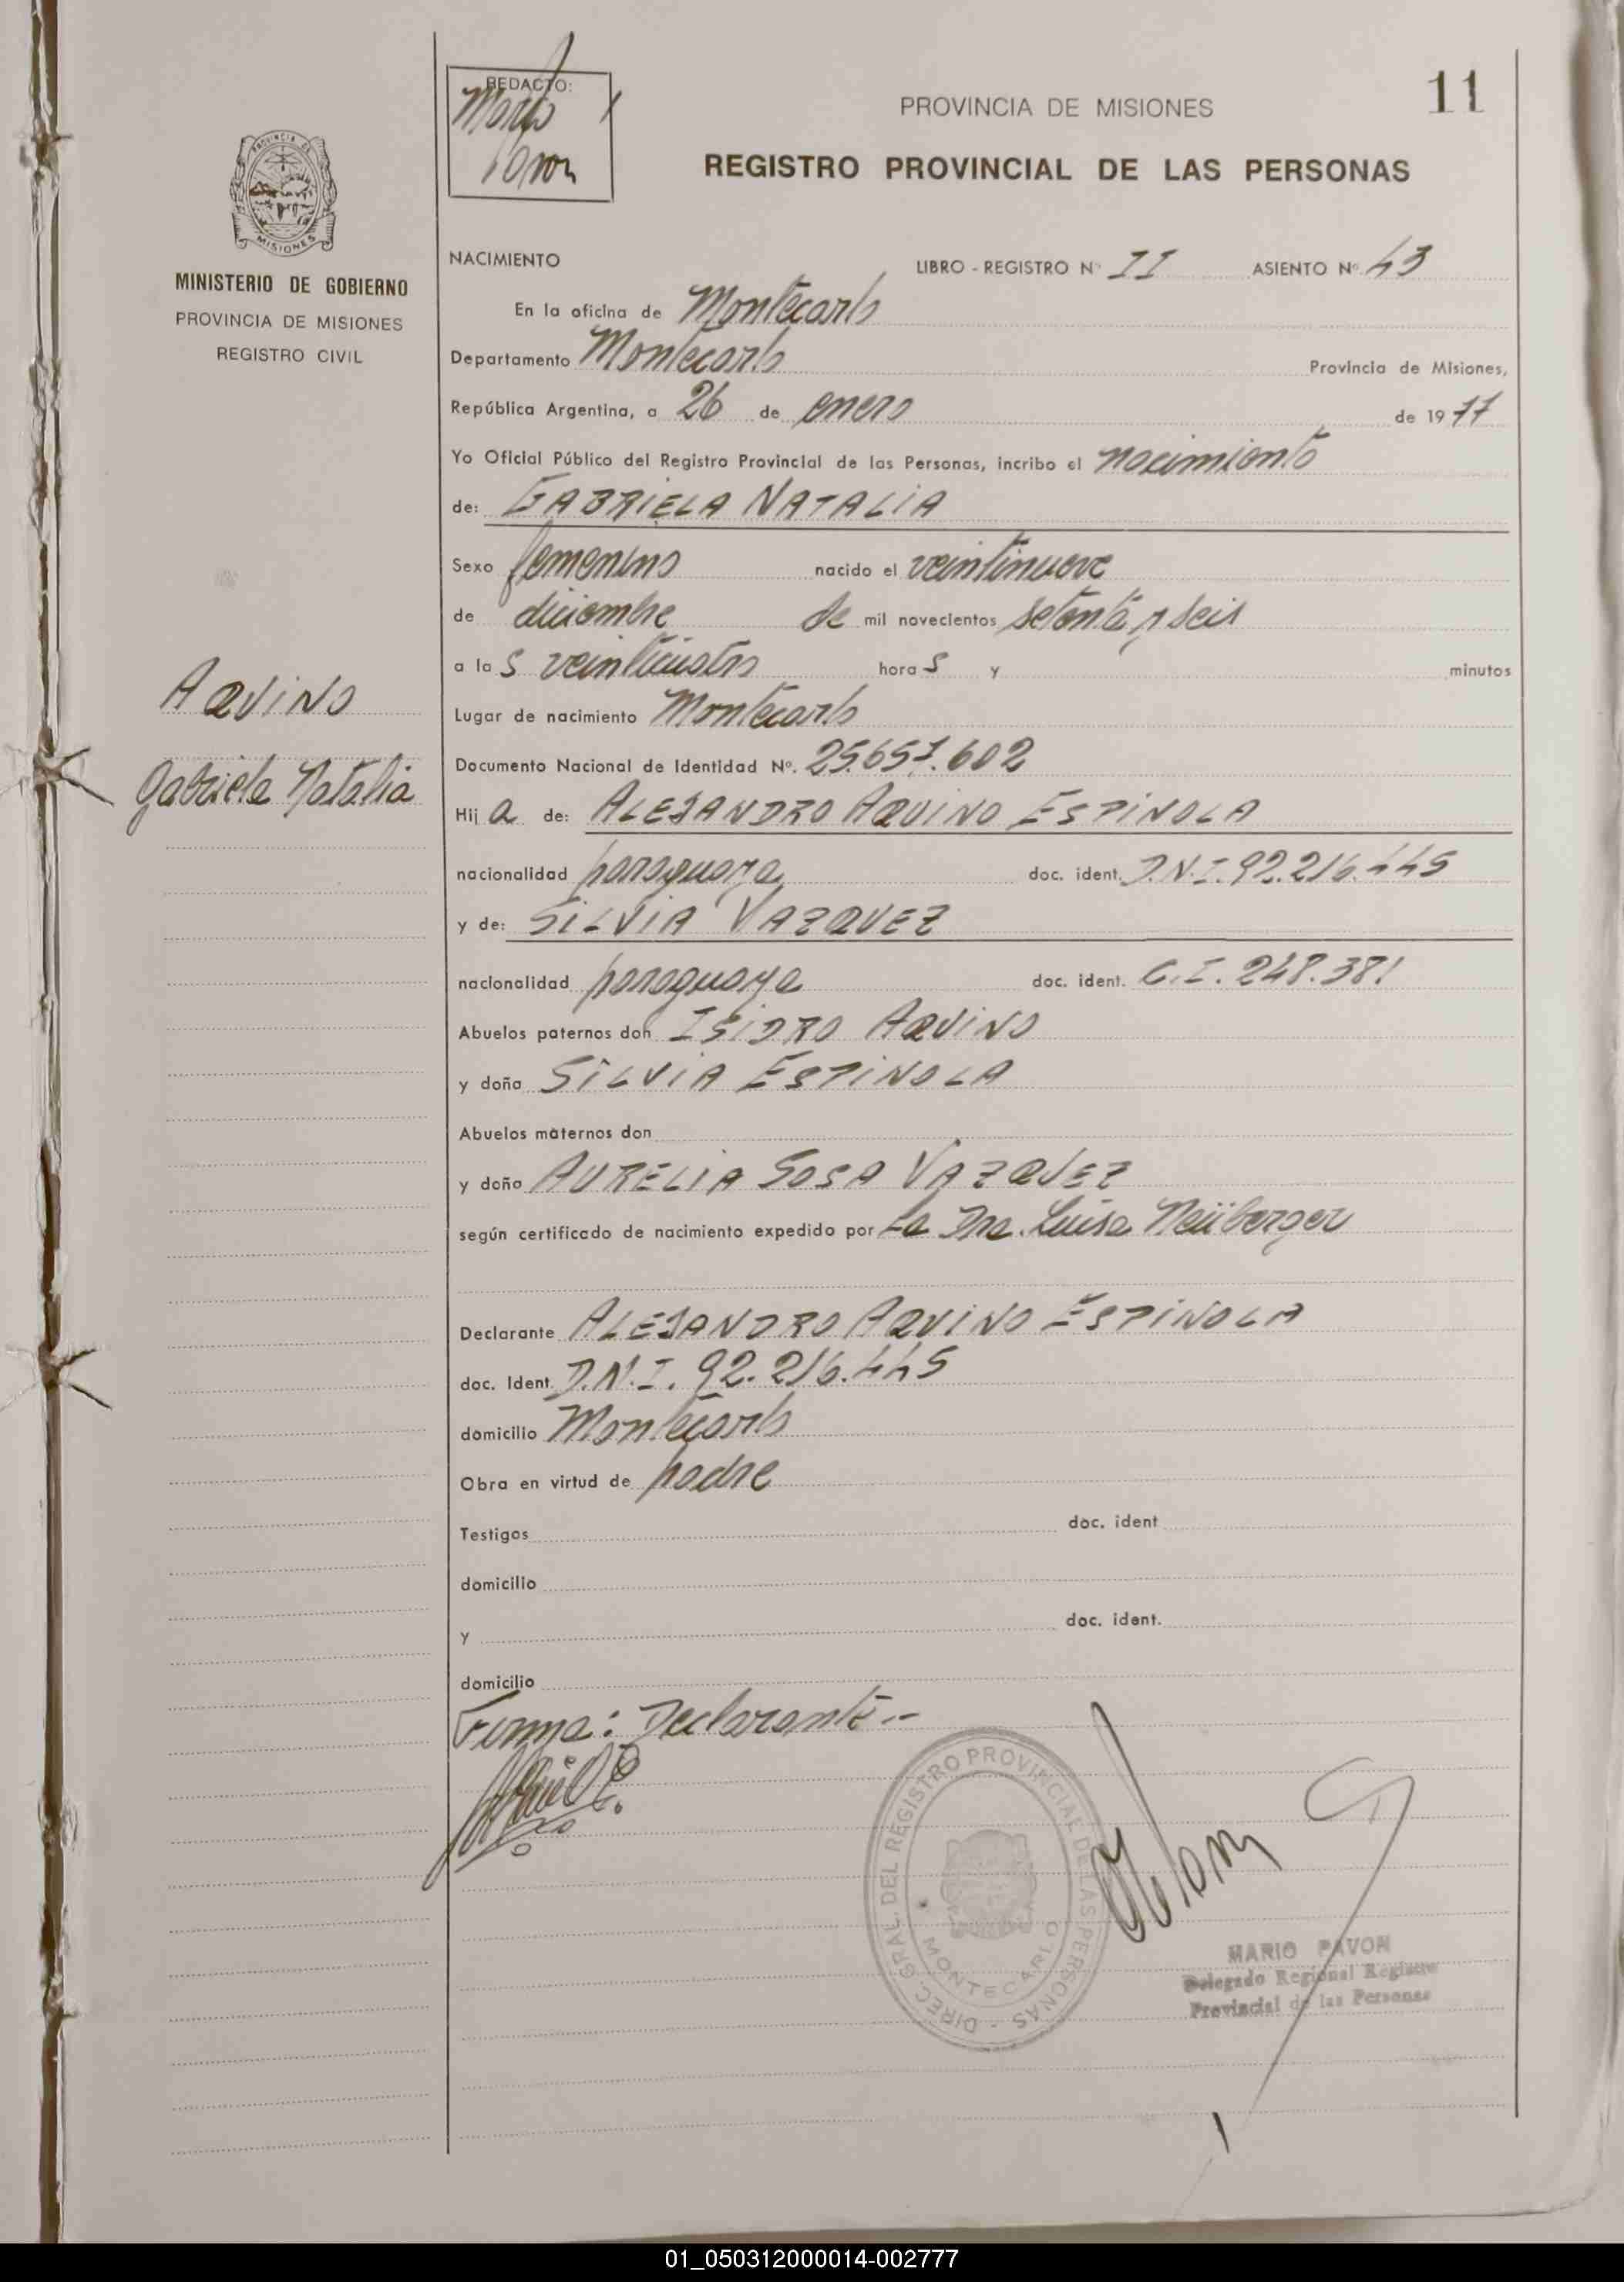 REDACTO:
Mario
Pavon
PROVINCIA DE MISIONES
11
REGISTRO PROVINCIAL DE LAS PERSONAS
PROVINCIA DE
MISIONES
MINISTERIO DE GOBIERNO
PROVINCIA DE MISIONES
REGISTRO CIVIL
NACIMIENTO LIBRO - REGISTRO Nº II ASIENTO Nº 43
En la oficina de Montecarlo
Departamento Montecarlo Provincia de Misiones,
República Argentina, a 26 de enero de 1977
Yo Oficial Público del Registro Provincial de las Personas, incribo el nacimiento
de: GABRIELA NATALIA
Sexo femenino nacido el veintinueve
de diciembre de mil novecientos setenta y seis
a las veinticuatro horas y minutos
AQUINO
Lugar de nacimiento Montecarlo
Gabriela Natalia
Documento Nacional de Identidad Nº. 25.657.602
Hija de: ALEJANDRO AQUINO ESPINOLA
nacionalidad paraguaya doc. ident. D.N.I. 92.216.445
y de: SILVIA VAZQUEZ
nacionalidad paraguaya doc. ident. C.I. 248.381
Abuelos paternos don ISIDRO AQUINO
y doña SILVIA ESPINOLA
Abuelos maternos don
y doña AURELIA SOSA VAZQUEZ
según certificado de nacimiento expedido por La Dra. Luisa Neüberger
Declarante ALEJANDRO AQUINO ESPINOLA
doc. Ident. D.N.I. 92.216.445
domicilio Montecarlo
Obra en virtud de padre
Testigos doc. ident
domicilio
y doc. ident.
domicilio
Firma: Declarante.-
DIREC. GRAL. DEL REGISTRO PROVINCIAL DE LAS PERSONAS -
MONTECARLO
MARIO PAVON
Delegado Regional Registro
Provincial de las Personas
01_050312000014-002777